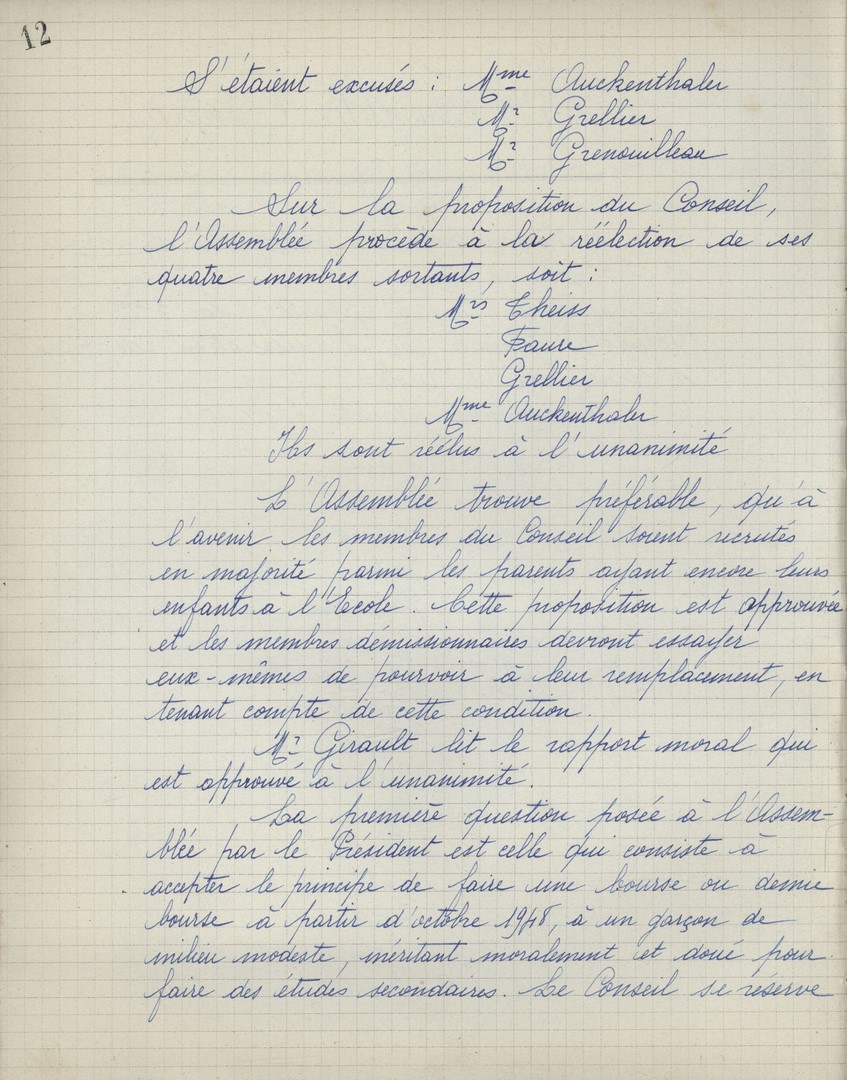 12
S'étaient excusés : Mme Auckenthaler
Mr Grellier
Mr Grenouilleau
Sur la proposition du Conseil,
l'Assemblée procède à la réélection de ses
quatre membres sortants, soit :
Mrs Theiss
Faure
Grellier
Mme Auckenthaler
Ils sont réélus à l'unanimité
L'Assemblée trouve préférable, qu'à
l'avenir les membres du Conseil soient recrutés
en majorité parmi les parents ayant encore leurs
enfants à l'Ecole. Cette proposition est approuvée
et les membres démissionnaires devront essayer
eux-mêmes de pourvoir à leur remplacement, en
tenant compte de cette condition.
Mr Girault lit le rapport moral qui
est approuvé à l'unanimité.
La première question posée à l'Assem-
blée par le Président est celle qui consiste à
accepter le principe de faire une bourse ou demie
bourse à partir d'octobre 1948, à un garçon de
milieu modeste, méritant moralement et doué pour
faire des études secondaires. Le Conseil se réserve